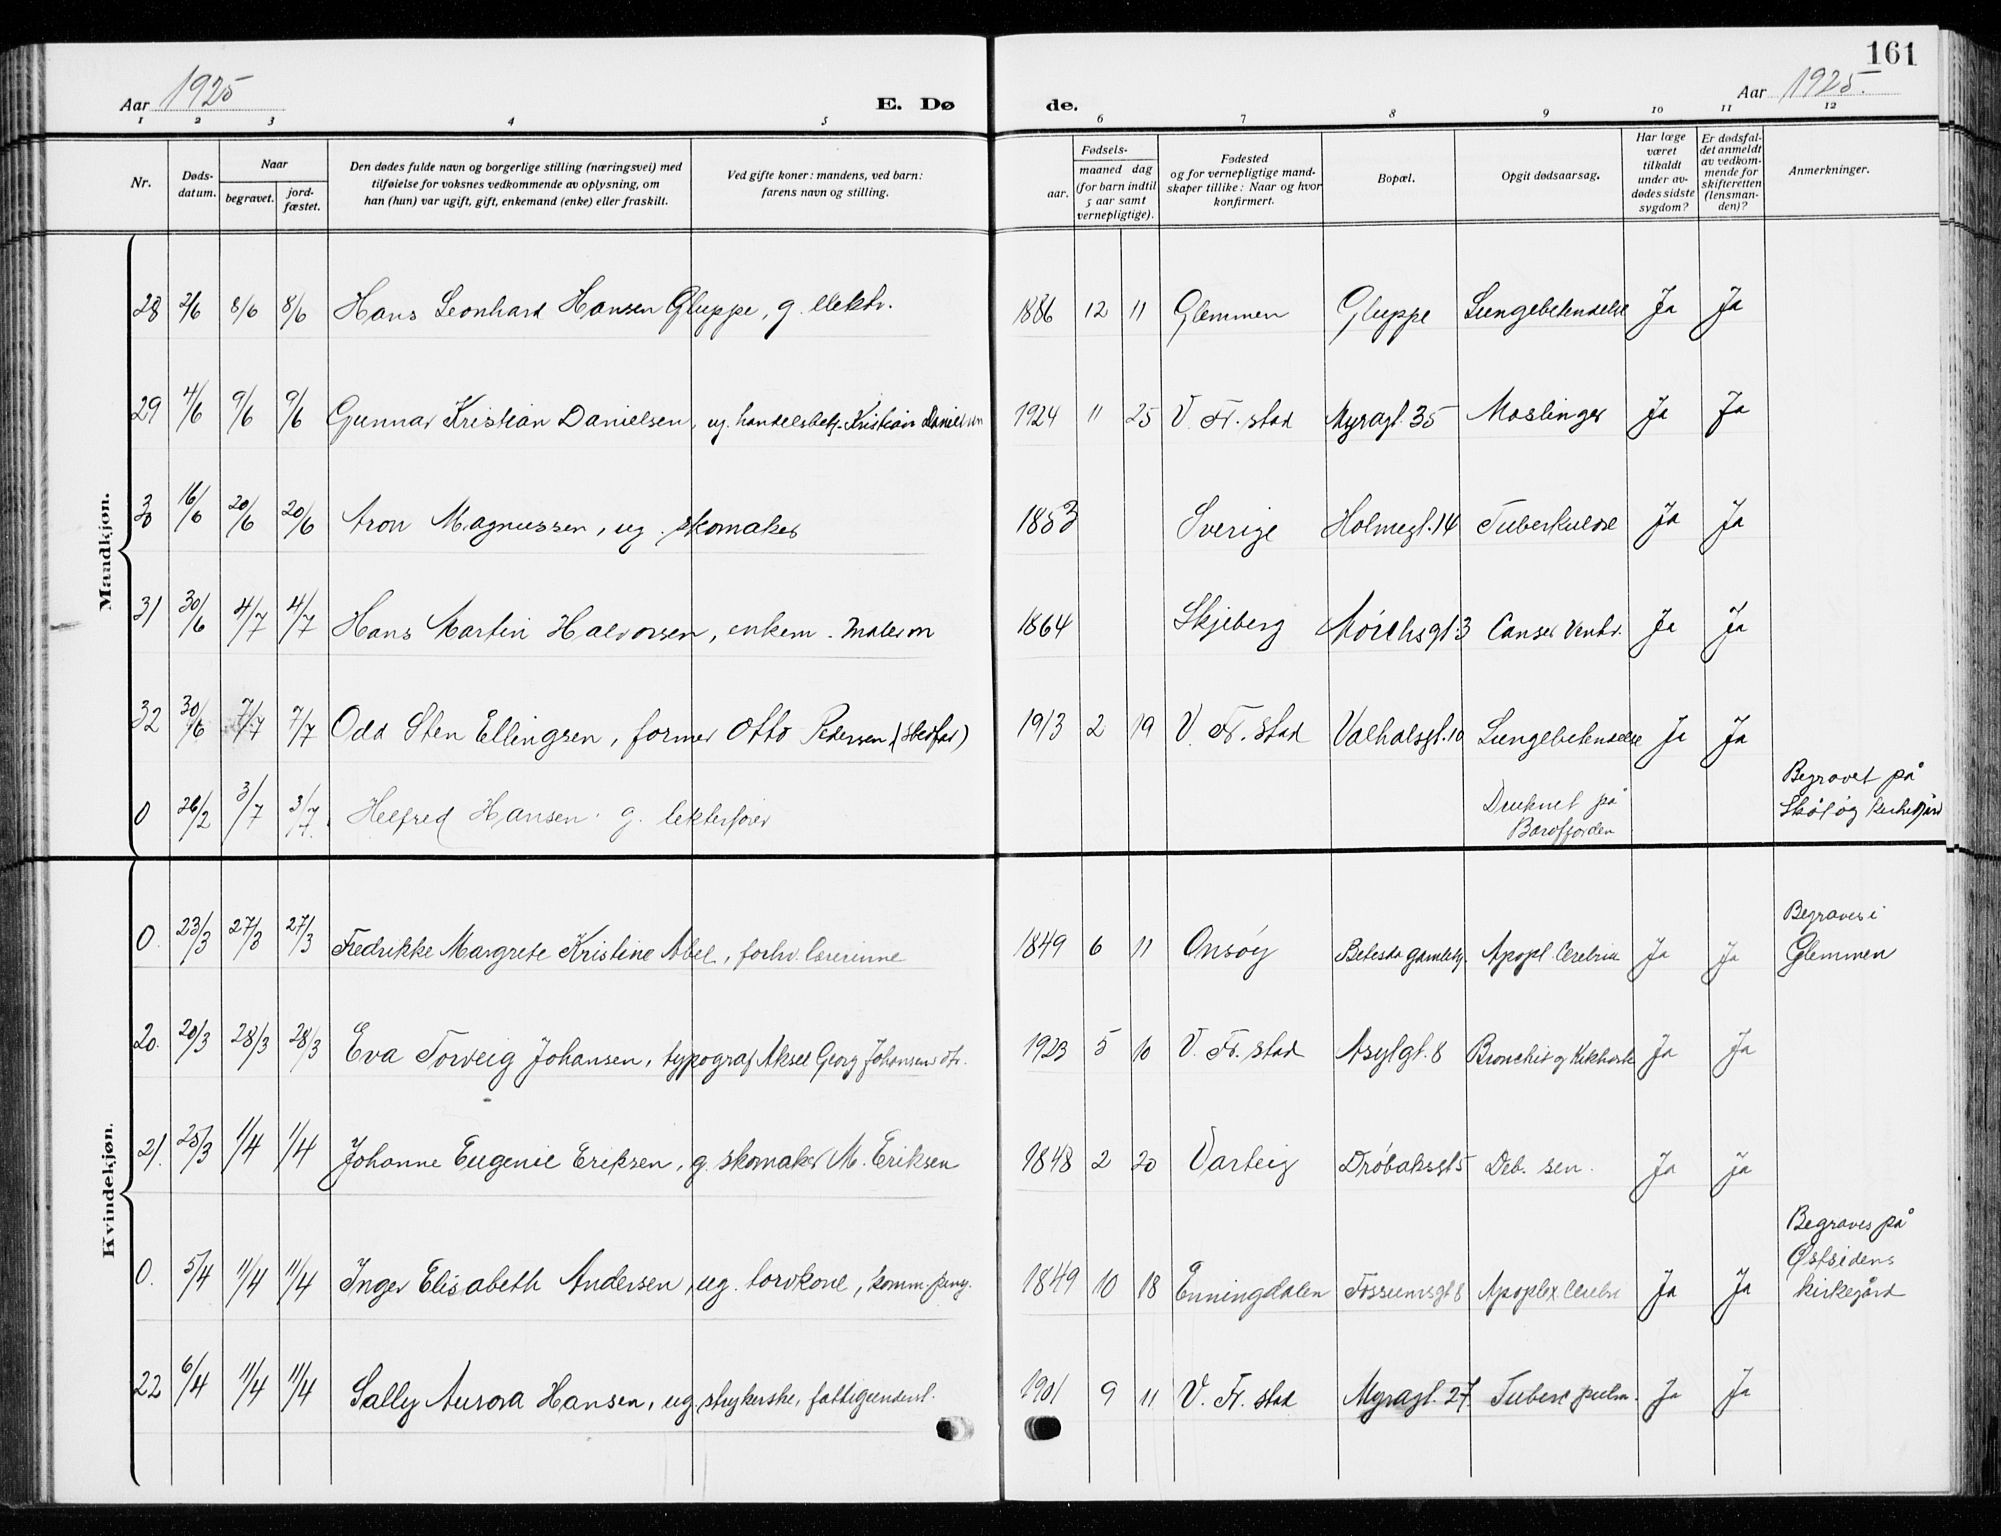 161
Aar 1925 E. Dø de. Aar 1925.
1 2 3 4 5 6 7 8 9 10 11 12
Nr. Døds-datum. Naar begravet. jord-fæstet. Den dødes fulde navn og borgerlige stilling (næringsvei) med tilføielse for voksnes vedkommende av oplysning, om han (hun) var ugift, gift, enkemand (enke) eller fraskilt. Ved gifte koner: mandens, ved barn: farens navn og stilling. Fødsels- aar. maaned dag (for barn indtil 5 aar samt vernepligtige). Fødested og for vernepligtige mandskaper tillike: Naar og hvor konfirmert. Bopæl. Opgit dødsaarsag. Har læge været tilkaldt under avdødes sidste sygdom? Er dødsfaldet anmeldt av vedkommende for skifteretten (lensmanden)? Anmerkninger.
Mandkjøn.
28 2/6 8/6 8/6 Hans Leonhard Hansen Gluppe, g. elektr. 1886 12 11 Glemmen Gluppe Lungebetendelse Ja Ja
29 4/6 9/6 9/6 Gunnar Kristian Danielsen, ug. handelsbetj. Kristian Danielsen 1924 11 25 V. Fr. stad Myragt. 35 Meslinger Ja Ja
30 16/6 20/6 20/6 Aron Magnussen, ug. skomaker 1853 Sverige Holmegt. 14 Tuberkulose Ja Ja
31 30/6 4/7 4/7 Hans Martin Halvorsen, enkem. malerm 1864 Skjeberg Mørchsgt. 3 Canser Ventr. Ja Ja
32 30/6 7/7 7/7 Odd Sten Ellingsen, former Otto Pedersen (stedfar) 1913 2 19 V. Fr. stad Valhalsgt. 10 Lungebetendelse Ja Ja
0 26/2 3/7 3/7 Helfred Hansen. g. lekterfører Druknet på Begravet på
Kvindekjøn.
0. 23/3 27/3 27/3 Fredrikke Margrete Kristine Abel, forhv. lærerinne 1849 6 11 Onsøy Betesda gamleh. Apopl. Cerebri Ja Ja Begraves i Glemmen
20. 20/3 28/3 28/3 Eva Torveig Johansen, typograf Aksel Georg Johansens dtr. 1923 5 10 V. Fr. stad Asylgt. 8 Bronchit og Kikhoste Ja Ja
21. 25/3 1/4 1/4 Johanne Eugenie Eriksen, g. skomaker M. Eriksen 1848 2 20 Varteig Drøbaksgt 5 Deb. sen. Ja Ja
0. 5/4 11/4 11/4 Inger Elisabeth Andersen, ug. torvkone, komm. 1849 10 18 Enningdalen Fossumsgt 8 Apoplex Cerebri Ja Ja Begraves på Østsidens kirkegård
22 6/4 11/4 11/4 Sally Aurora Hansen, ug. strykerske, fattigunderst. 1901 9 11 V. Fr. stad Myragt. 27 Tuberc pulm. Ja Ja